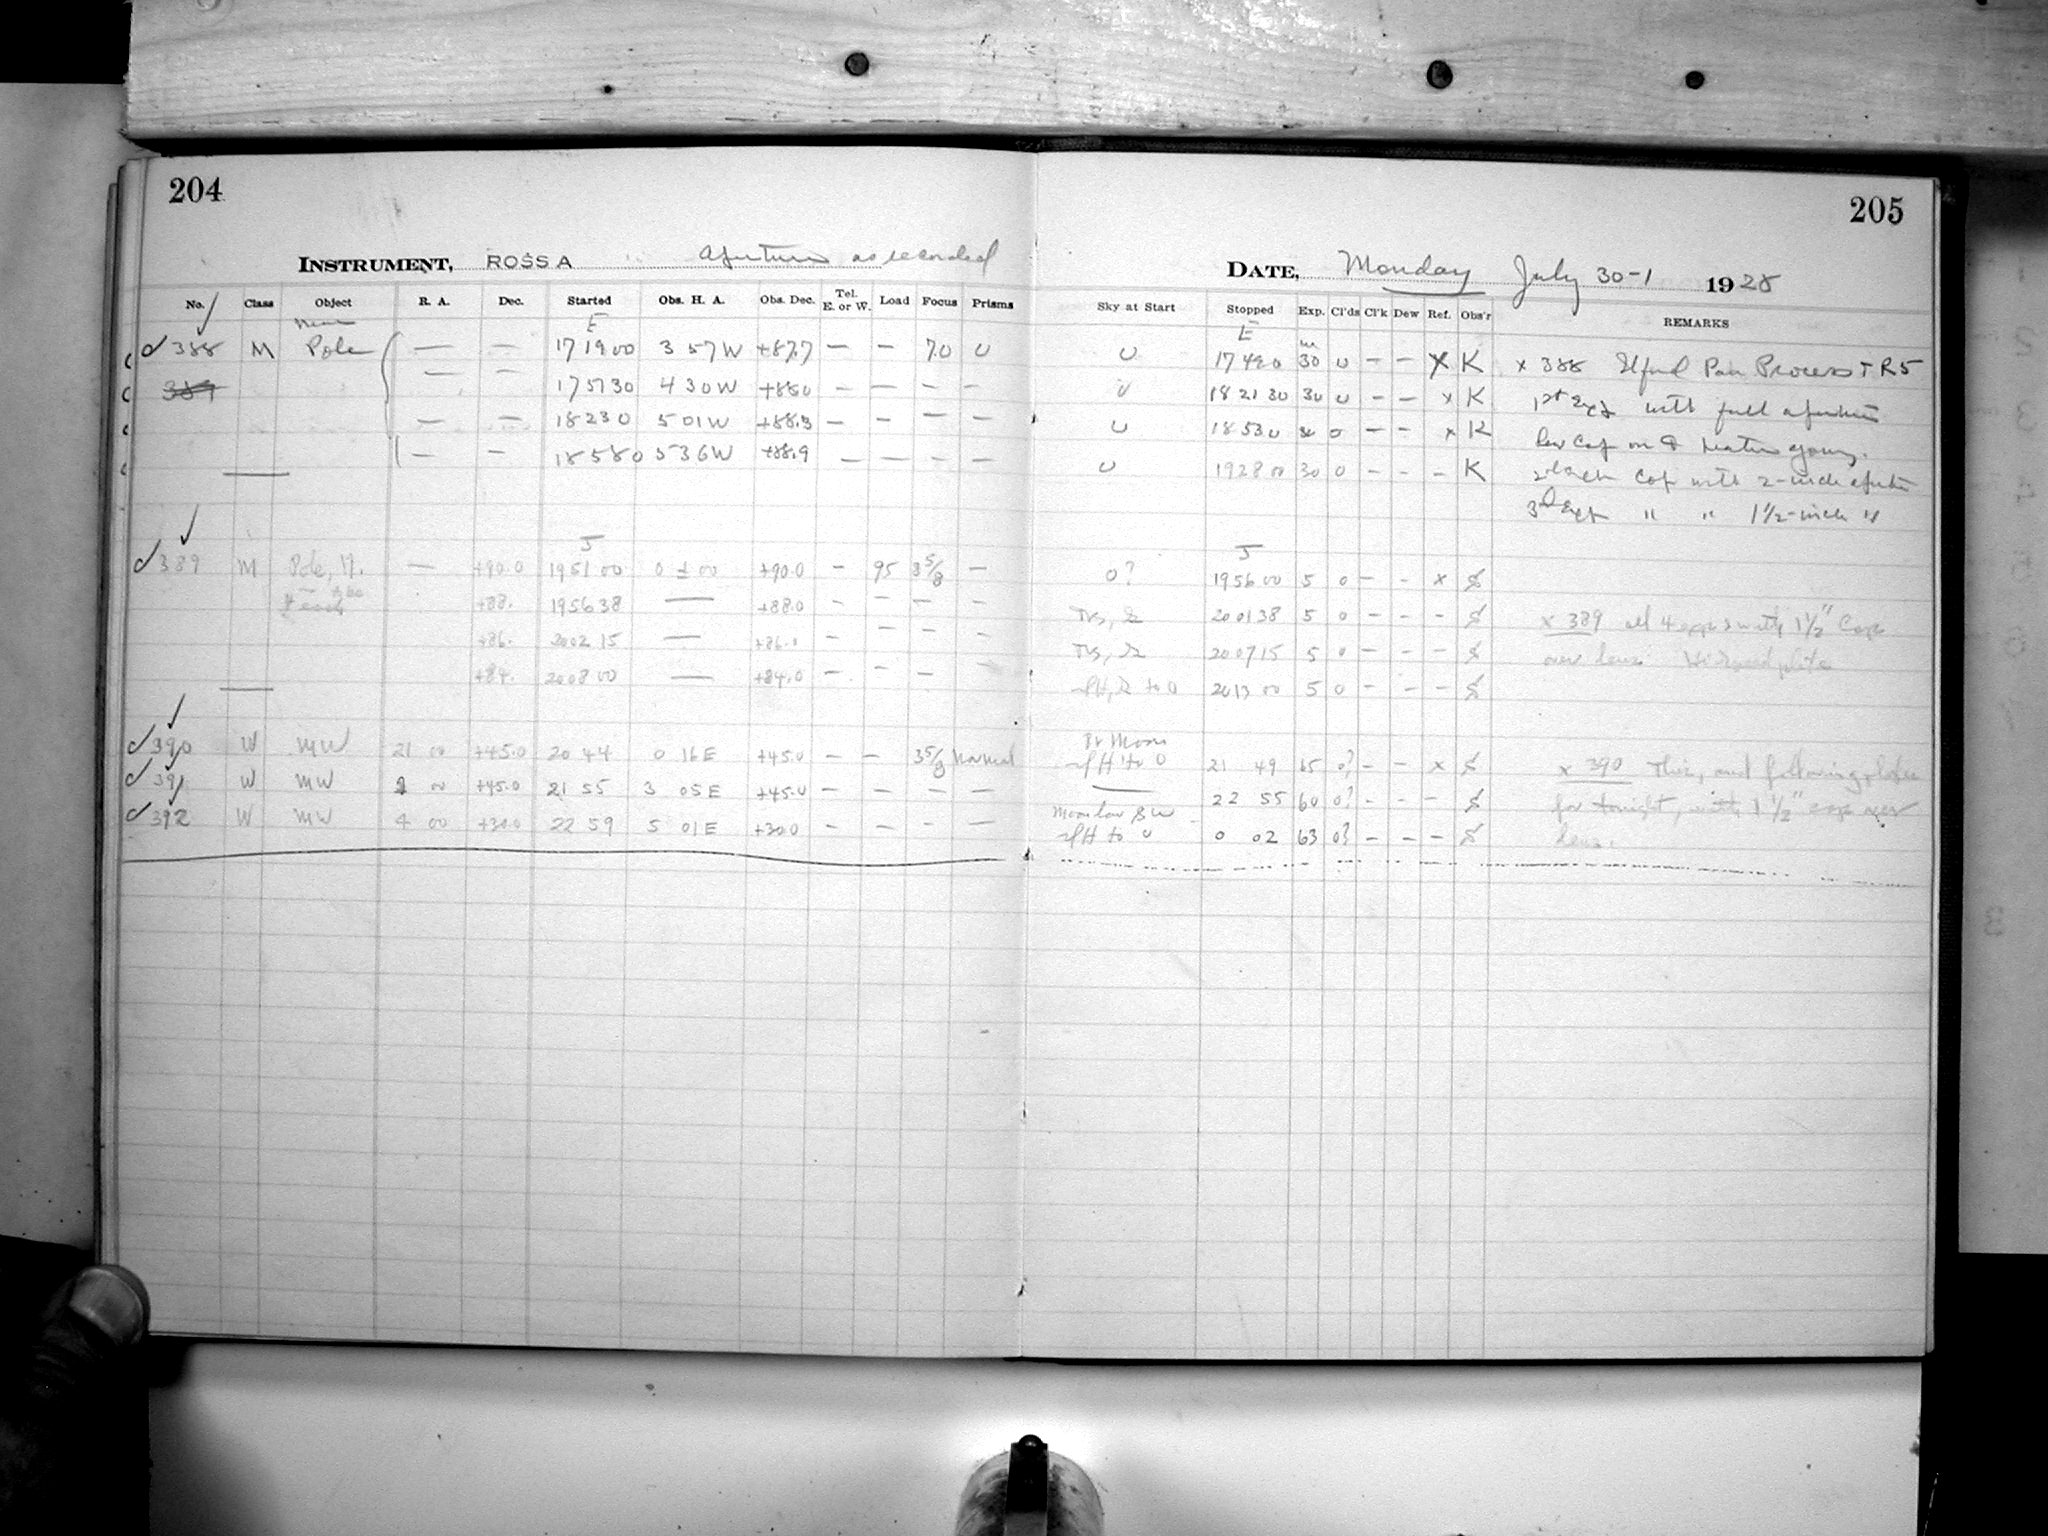 204
INSTRUMENT, ROSS A Aperture as recorded
No. Class Object R. A. Dec. Started Obs. H. A. Obs. Dec. Tel. E. or W. Load Focus Prisms
E
388 M Near Pole — — 17 19 00 3 57 W +87.7 — — 7.0 0
389 — — 17 51 30 4 30 W +88.0 — — — —
— — 18 23 0 5 01 W +88.3 — — — —
— — 18 58 0 5 36 W +88.9 — — — —
J
389 M Pole, — +90.0 19 51 00 0 ± 00 +90.0 — 95 3 5/8 —
+88. 19 56 38 — +88.0 — — — —
+86. 20 02 15 — +86.0 — — — —
+84. 20 08 00 — +84.0 — — —
390 W MW 21 00 +45.0 20 44 0 16 E +45.0 — — 3 5/8 Normal
391 W MW 00 +45.0 21 55 3 05 E +45.0 — — — —
392 W MW 4 00 +30.0 22 59 5 01 E +30.0 — — — —
205
DATE, Monday July 30-1 1928
Sky at Start Stopped Exp. Cl'ds Cl'k Dew Ref. Obs'r REMARKS
E m
0 17 49 0 30 0 — — X K x 388 Ilford Pan Process + R5
0 18 21 30 30 0 — — x K 1st Exp with full aperture
0 18 53 0 0 — — x K
0 19 28 00 30 0 — — — K Cap with 2-inch aperture
3rd Exp " " 1 1/2-inch "
J
0? 19 56 00 5 0 — — x
20 01 38 5 0 — — — x 389 all 4 exps with 1 1/2" Cap
20 07 15 5 0 — — — over lens Hi Speed plate
to 0 20 13 00 5 0 — — —
Br Moon
to 0 21 49 65 0? — — x x 390 This, and following plates
— 22 55 60 0? — — — for tonight, with 1 1/2" cap over
Moon low
to 0 0 02 63 0? — — — lens.